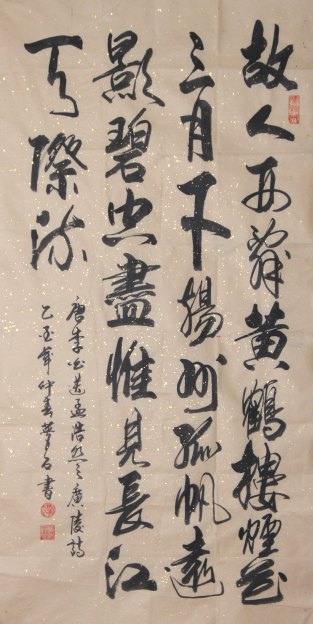 故人西辭黃鶴樓煙花
三月下揚州孤帆遠
影碧空盡惟見長江
天際流
唐李白送孟浩然之廣陵詩
乙年仲春書